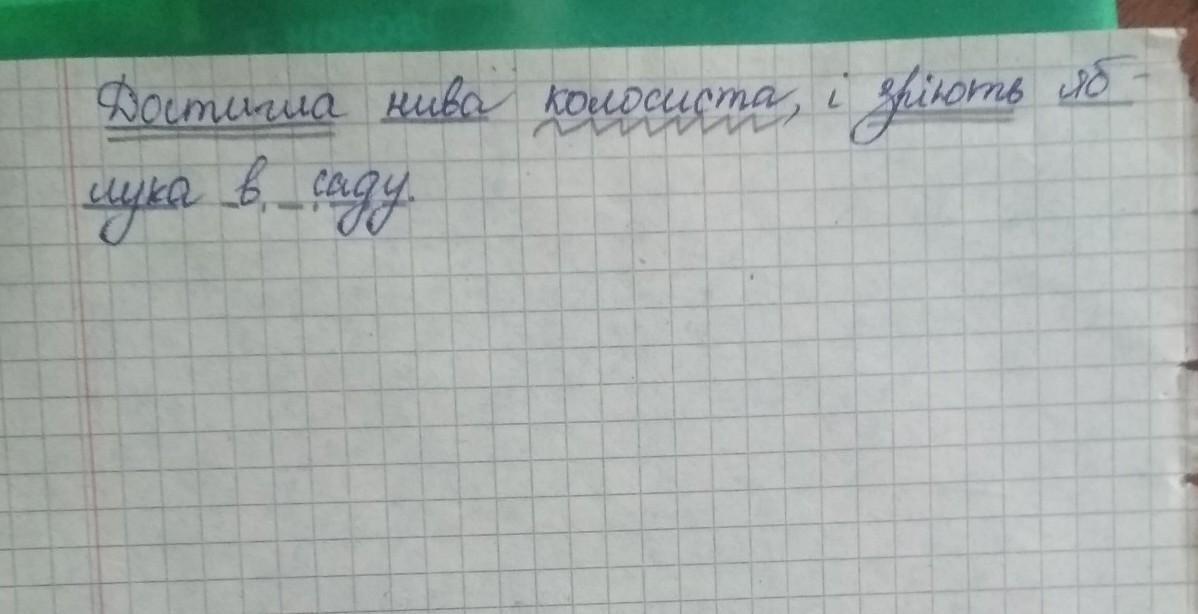 Достигла нива колосиста, і зріють яб-
лука в саду.